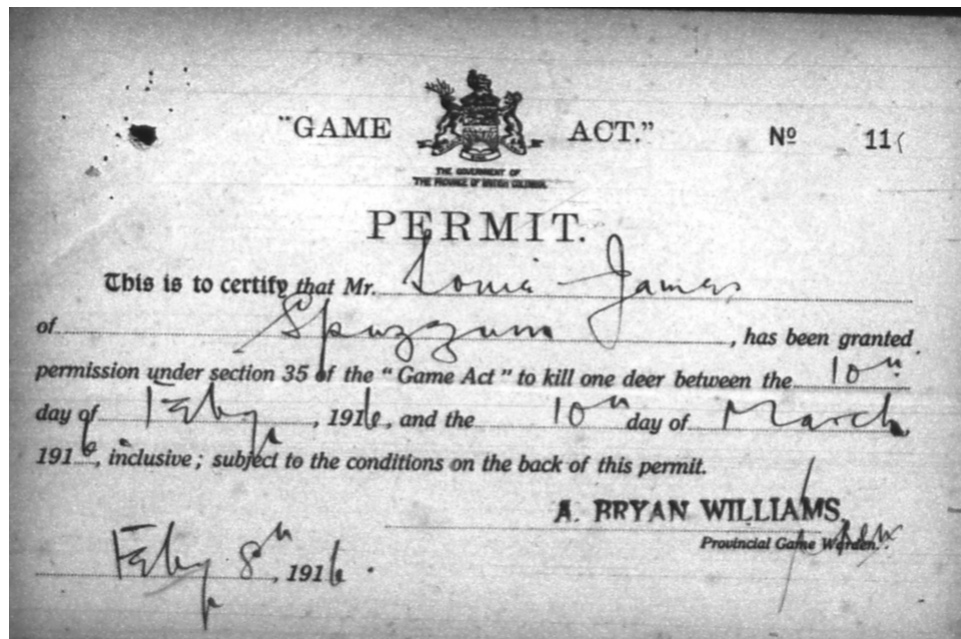 "GAME ACT." No 11
THE GOVERNMENT OF
THE PROVINCE OF BRITISH COLUMBIA
PERMIT.
This is to certify that Mr. Louie James
of Spuzzum, has been granted
permission under section 35 of the "Game Act" to kill one deer between the 10th
day of Feby, 1916, and the 10th day of March
1916, inclusive; subject to the conditions on the back of this permit.
A. BRYAN WILLIAMS,
Provincial Game Warden.
Feby 8th, 1916.